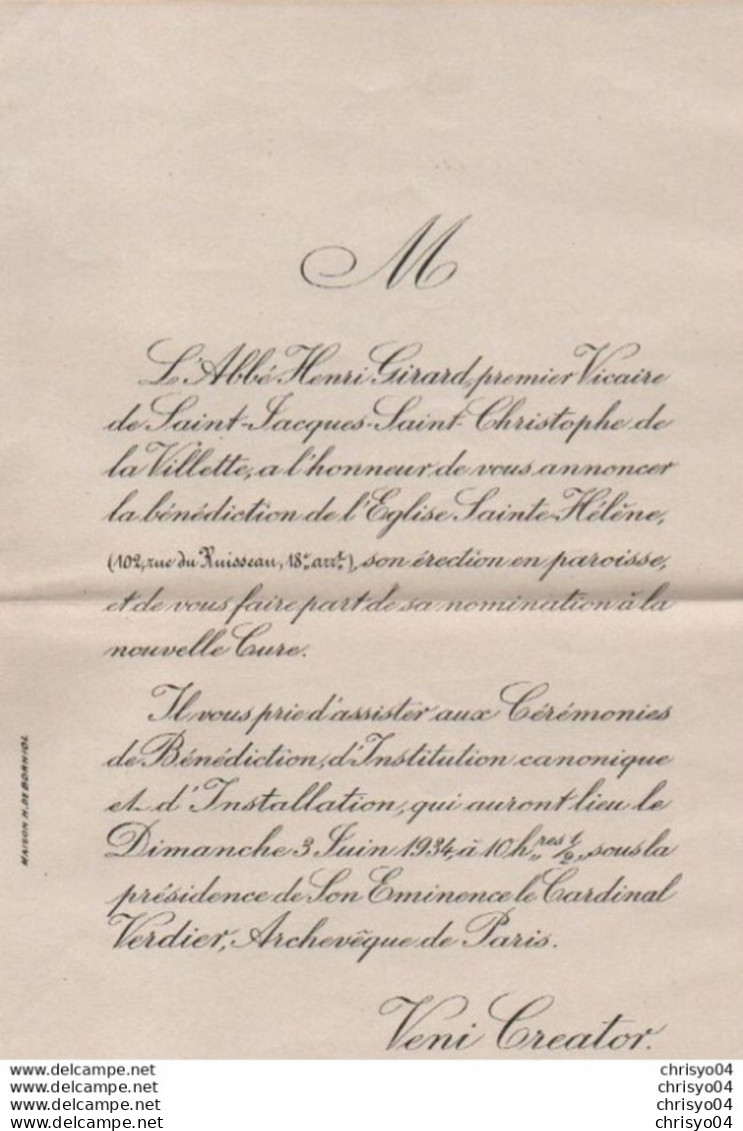 M
L'Abbé Henri Girard, premier Vicaire
de Saint-Jacques-Saint-Christophe de
la Villette, a l'honneur de vous annoncer
la bénédiction de l'Eglise Sainte-Hélène,
(102, rue du Ruisseau, 18e arrt), son érection en paroisse,
et de vous faire part de sa nomination à la
nouvelle Cure.
Il vous prie d'assister aux Cérémonies
de Bénédiction, d'Institution canonique
et d'Installation, qui auront lieu le
Dimanche 3 Juin 1934, à 10 hres 1/2, sous la
présidence de Son Eminence le Cardinal
Verdier, Archevêque de Paris.
Veni Creator.
MAISON H. DE BORNIOL
www.delcampe.net chrisyo04
www.delcampe.net chrisyo04
www.delcampe.net chrisyo04
www.delcampe.net chrisyo04